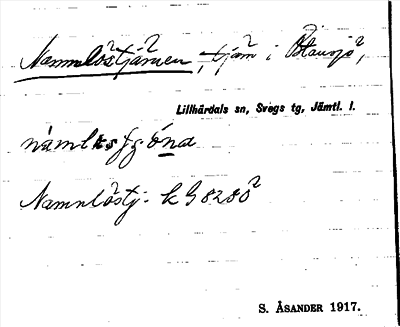 Namnlöstjärnen, tjärn i Olausjö,
Lillhärdals sn, Svegs tg, Jämtl. l.
Namnlöstj. k G 8280
S. ÅSANDER 1917.